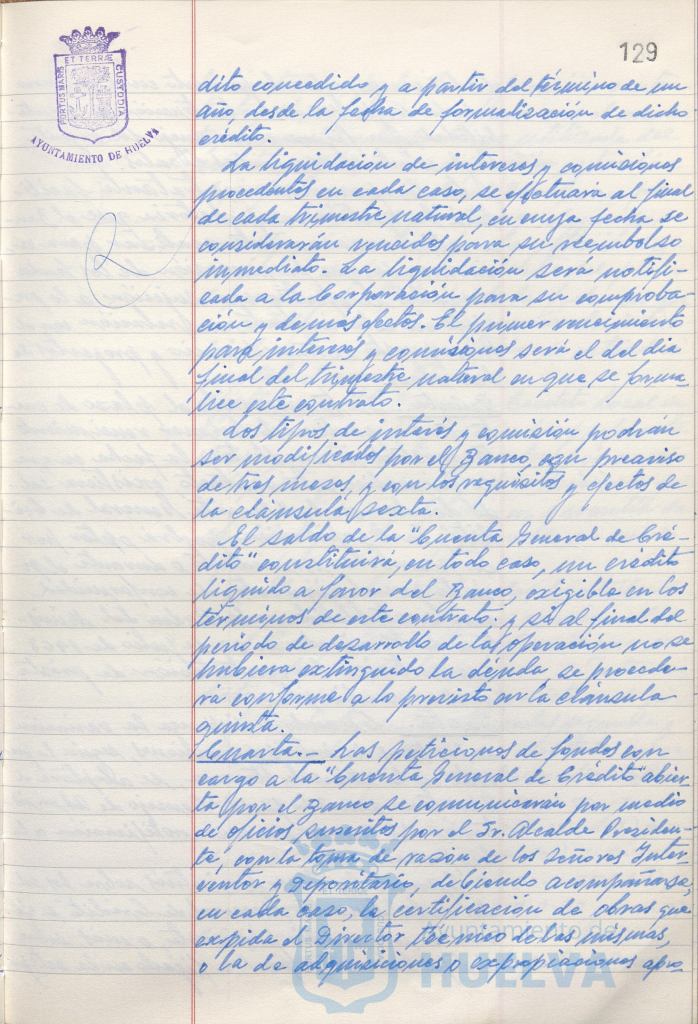 129
ET TERRÆ
PORTUS MARIS
CUSTODIA
AYUNTAMIENTO DE HUELVA
dito concedido y a partir del término de un
año, desde la fecha de formalización de dicho
crédito.
La liquidación de intereses y comisiones
procedentes en cada caso, se efectuará al final
de cada trimestre natural, en cuya fecha se
considerarán vencidos para su reembolso
inmediato. La liquidación será notifi-
cada a la Corporación para su comproba-
ción y demás efectos. El primer vencimiento
para intereses y comisiones será el del dia
final del trimestre natural en que se forma-
lice este contrato.
Los tipos de interés y comisión podrán
ser modificados por el Banco, con preaviso
de tres meses, y con los requisitos y efectos de
la cláusula sexta.
El saldo de la "Cuenta General de Cré-
dito" constituirá, en todo caso, un crédito
líquido a favor del Banco, exigible en los
términos de este contrato. y si al final del
periodo de desarrollo de la operación no se
hubiera extinguido la deuda, se procede-
rá conforme a lo previsto en la cláusula
quinta.
Cuarta.- Las peticiones de fondos con
cargo a la "Cuenta General de Crédito" abier-
ta por el Banco se comunicarán por medio
de oficios suscritos por el Sr. Alcalde Presiden-
te, con la toma de razón de los Señores Inter-
ventor y Depositario, debiendo acompañarse,
en cada caso, la certificación de obras que
expida el Director Técnico de las mismas,
o la de adquisiciones o expropiaciones apro-
Ayuntamiento de
HUELVA